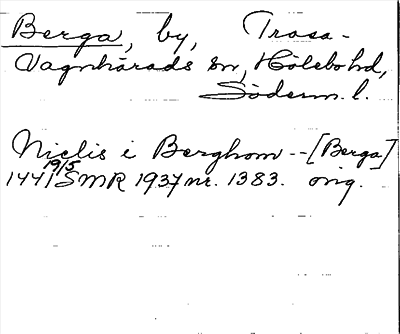 Berga, by, Trosa-
Vagnhärads sn, Hölebo hd,
Söderm. l.
Niclis i Berghom -- [Berga]
1441 19/5 SMR 1937 nr. 1383. orig.